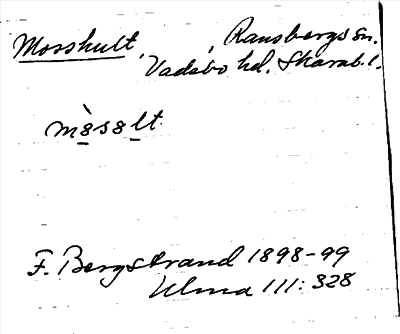 Morshult, , Ransbergs sn.
Vadsbo hd. Skarab.l.
mòsəlt
F. Bergstrand 1898-99
Ulma 111: 328